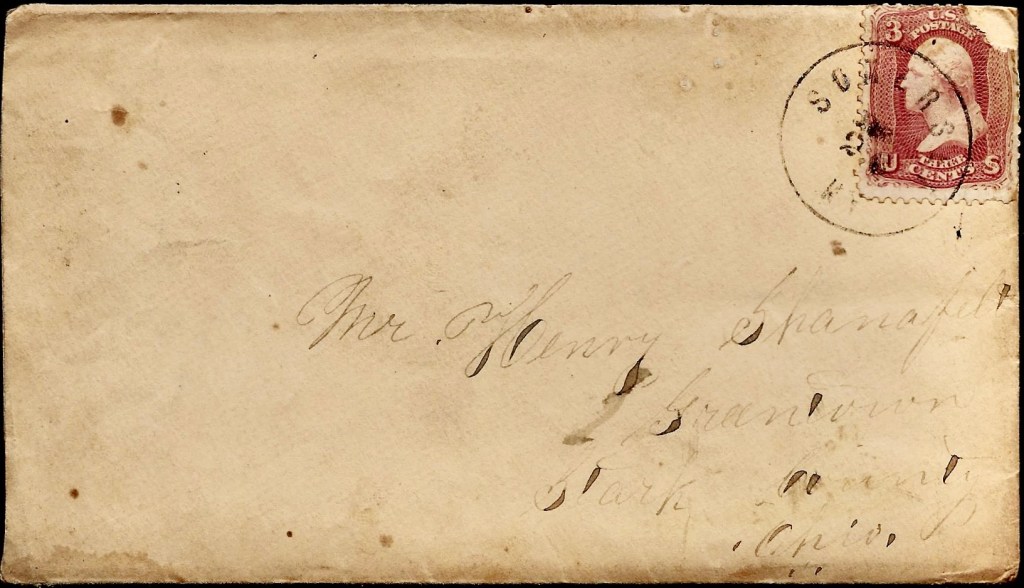 3 U.S. POSTAGE
THREE
U CENTS S
SOMERS
Mr Henry Shanafelt
Greentown
Stark County
Ohio.